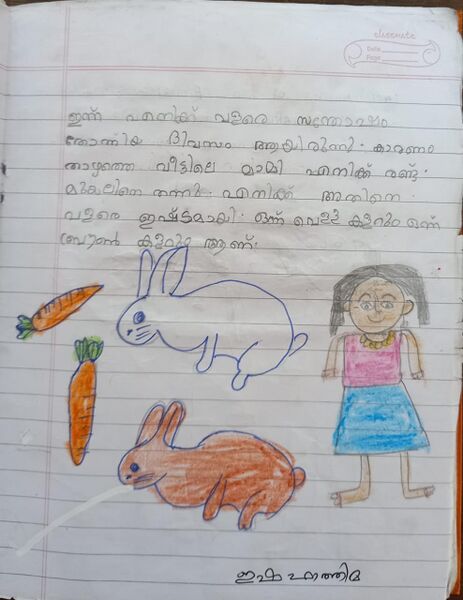 classmate
Date
Page
ഇന്ന് എനിക്ക് വളരെ സന്തോഷം
തോന്നിയ ദിവസം ആയിരുന്നു. കാരണം
താഴത്തെ വീട്ടിലെ മാമി എനിക്ക് രണ്ട്
മുയലിനെ തന്നു. എനിക്ക് അതിനെ
വളരെ ഇഷ്ടമായി. ഒന്ന് വെള്ള കളറും ഒന്ന്
ബ്രൗൺ കളറും ആണ്.
ഇഷ ഫാത്തിമ